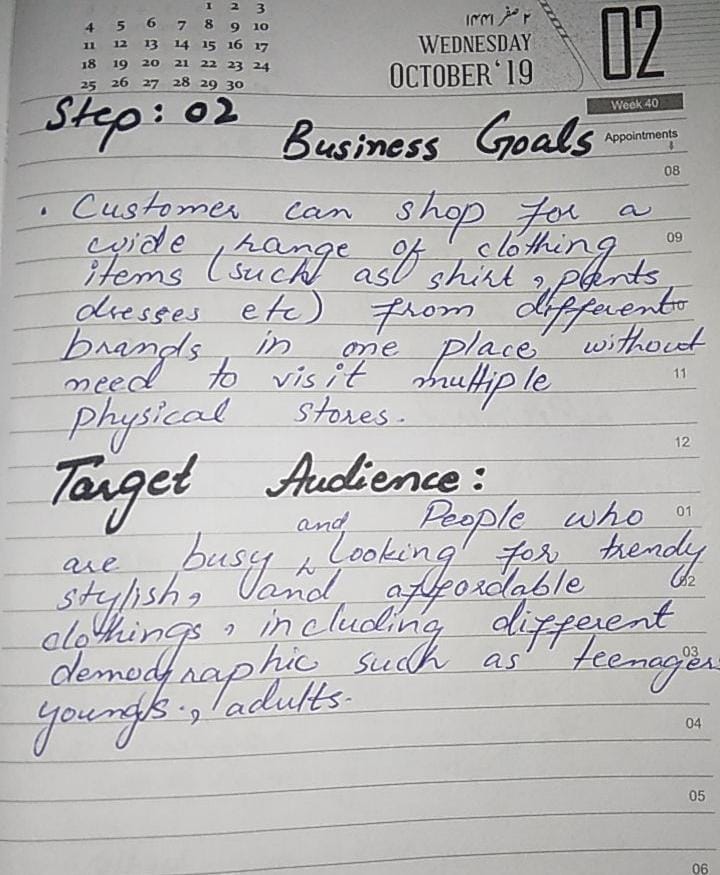 1 2 3
4 5 6 7 8 9 10
11 12 13 14 15 16 17
18 19 20 21 22 23 24
25 26 27 28 29 30
۲ صفر ۱۴۴۱
WEDNESDAY
OCTOBER '19
02
Week 40
Step: 02
Business Goals
Appointments
08
• Customer can shop for a
wide range of clothing
09
items (such as shirt, pants
dresses etc) from different
brands in one place without
need to visit multiple
11
physical stores.
12
Target Audience:
People who
01
are busy and looking for trendy
stylish, and affordable
02
clothings, including different
demographic such as teenagers
03
youngs, adults.
04
05
06